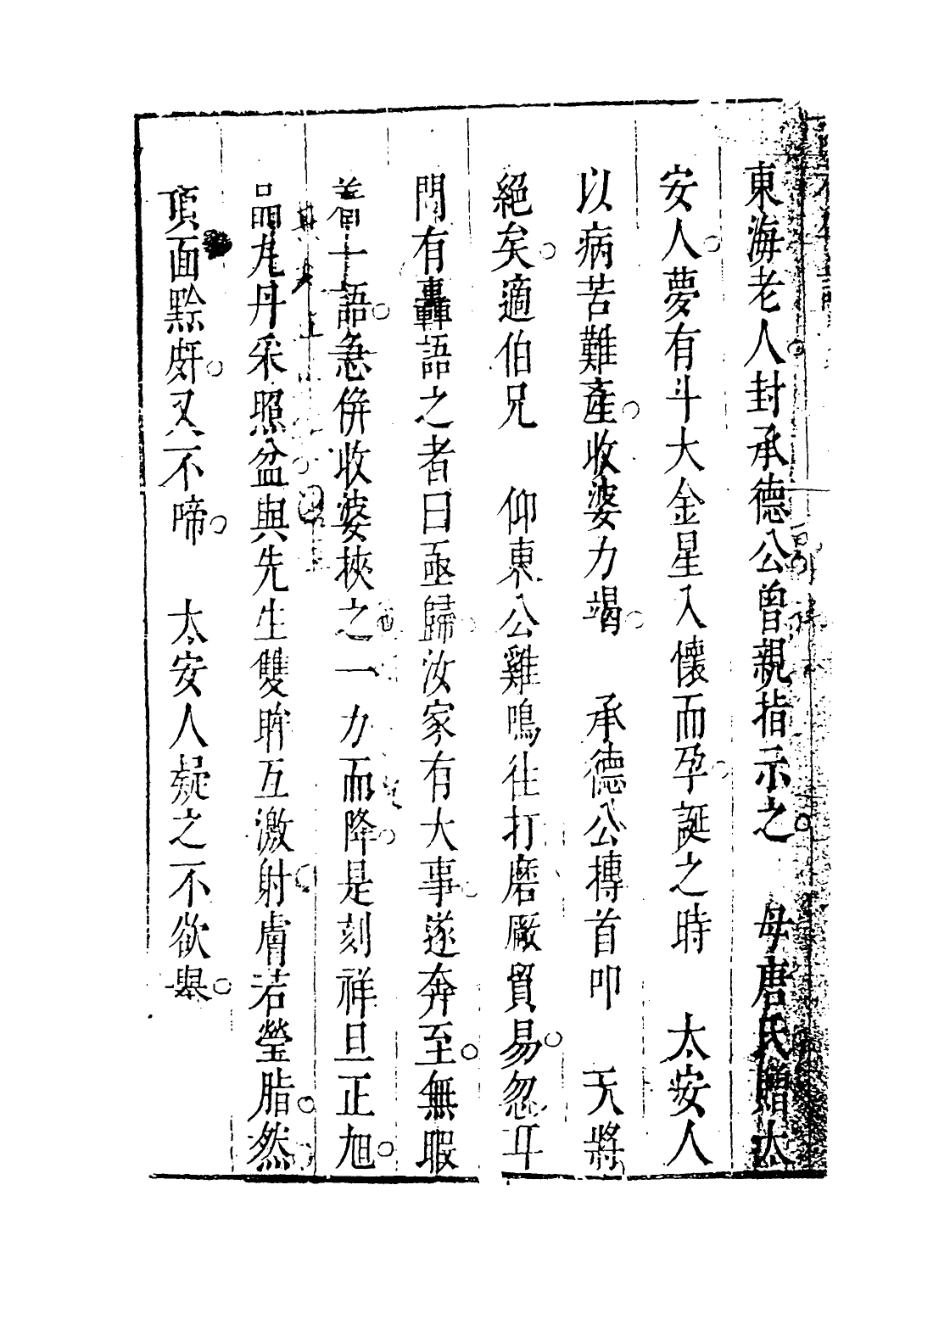 東海老人封承德公曾親指示之 母唐氏贈太
安人夢有斗大金星入懷而孕誕之時 太安人
以病苦難產收婆力竭 承德公摶首叩 天將
絕矣適伯兄 仰東公雞鳴往打磨廠貿易忽耳
門有轟語之者曰亟歸汝家有大事遂奔至無暇
着一語急倂收婆挾之一力而降是刻祥旦正旭
晶丸丹采照盆與先生雙眸互激射膚若瑩脂然
頂面黔皯又不啼 太安人疑之不欲舉